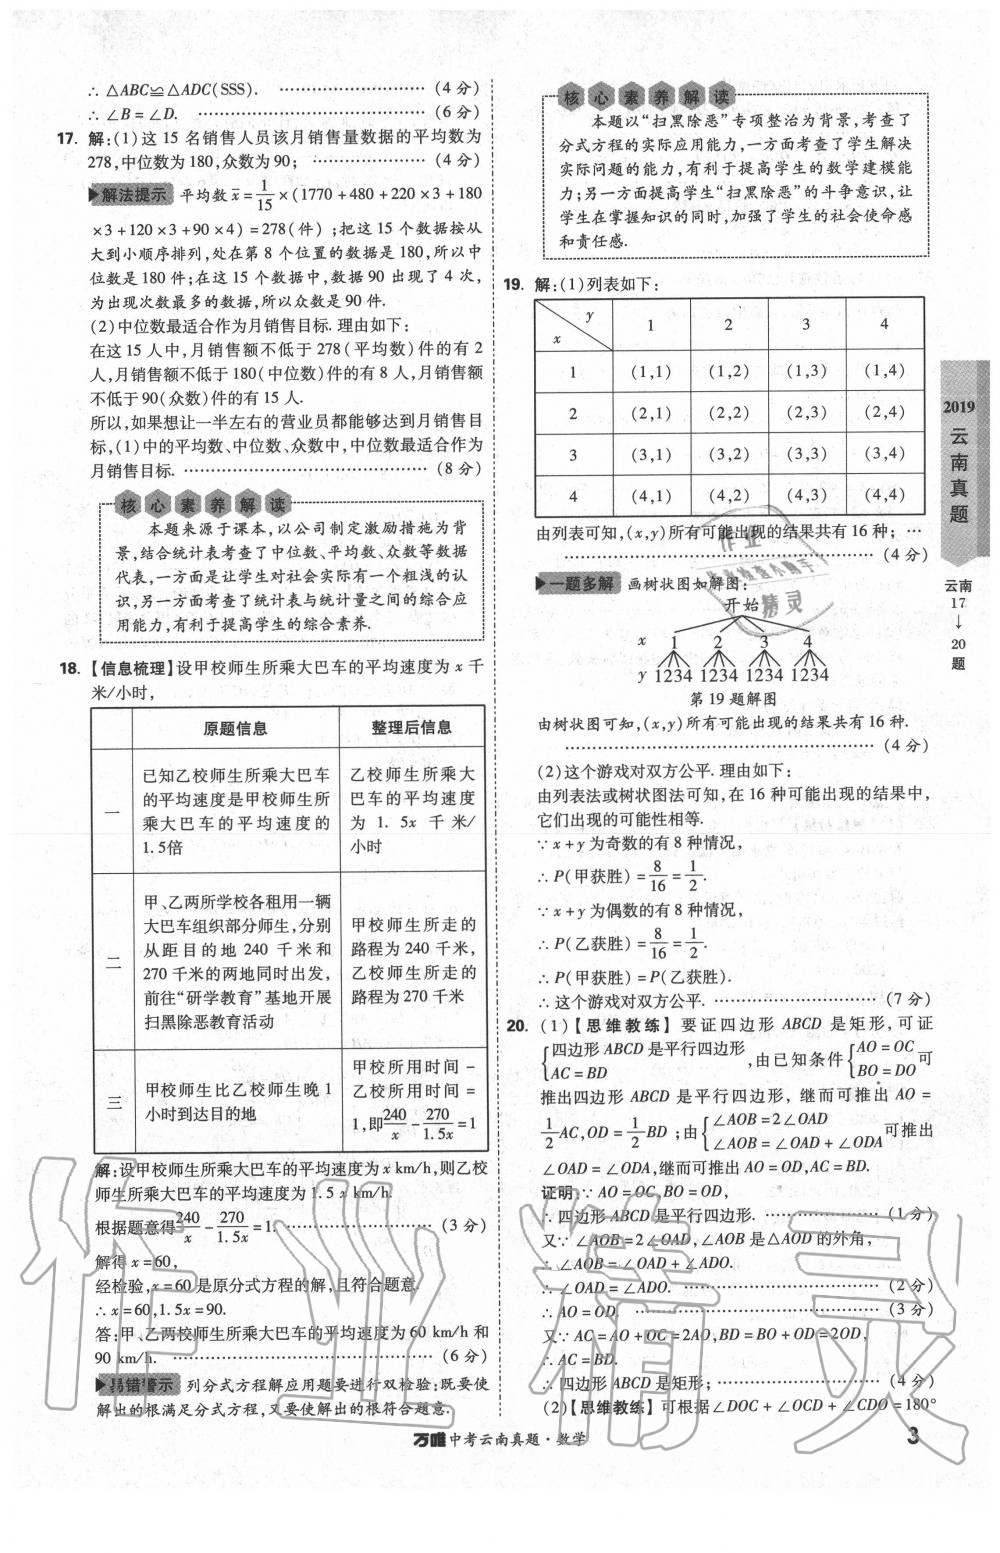 ∴ △ABC≌△ADC(SSS). ………………………… (4 分)
∴ ∠B = ∠D. ………………………………… (6 分)
17. 解:(1)这 15 名销售人员该月销售量数据的平均数为
278,中位数为 180,众数为 90; ………………… (4 分)
▶解法提示 平均数 x̄ = 1/15 ×(1770 +480 +220 ×3 +180
×3 +120 ×3 +90 ×4) =278(件);把这 15 个数据按从
大到小顺序排列,处在第 8 个位置的数据是 180,所以中
位数是 180 件;在这 15 个数据中,数据 90 出现了 4 次,
为出现次数最多的数据,所以众数是 90 件.
(2)中位数最适合作为月销售目标. 理由如下:
在这 15 人中,月销售额不低于 278(平均数)件的有 2
人,月销售额不低于 180(中位数)件的有 8 人,月销售额
不低于 90(众数)件的有 15 人.
所以,如果想让一半左右的营业员都能够达到月销售目
标,(1)中的平均数、中位数、众数中,中位数最适合作为
月销售目标. …………………………………… (8 分)
核心素养解读
本题来源于课本,以公司制定激励措施为背
景,结合统计表考查了中位数、平均数、众数等数据
代表,一方面是让学生对社会实际有一个粗浅的认
识,另一方面考查了统计表与统计量之间的综合应
用能力,有利于提高学生的综合素养.
18. 【信息梳理】设甲校师生所乘大巴车的平均速度为 x 千
米/小时,
原题信息 整理后信息
一
已知乙校师生所乘大巴车
的平均速度是甲校师生所
乘大巴车的平均速度的
1.5倍
乙校师生所乘大
巴车的平均速度
为 1. 5x 千米/
小时
二
甲、乙两所学校各租用一辆
大巴车组织部分师生,分别
从距目的地 240 千米和
270 千米的两地同时出发,
前往“研学教育”基地开展
扫黑除恶教育活动
甲校师生所走的
路程为 240 千米,
乙校师生所走的
路程为 270 千米
三
甲校师生比乙校师生晚 1
小时到达目的地
甲校所用时间 -
乙校所用时间 =
1,即 240/x - 270/1.5x = 1
解:设甲校师生所乘大巴车的平均速度为 x km/h,则乙校
师生所乘大巴车的平均速度为 1. 5 x km/h.
根据题意得 240/x - 270/1.5x = 1. …………………… (3 分)
解得 x = 60,
经检验,x = 60 是原分式方程的解,且符合题意.
∴ x = 60,1. 5x = 90.
答:甲、乙两校师生所乘大巴车的平均速度为 60 km/h 和
90 km/h. ……………………………………… (6 分)
▶易错警示 列分式方程解应用题要进行双检验:既要使
解出的根满足分式方程,又要使解出的根符合题意.
核心素养解读
本题以“扫黑除恶”专项整治为背景,考查了
分式方程的实际应用能力,一方面考查了学生解决
实际问题的能力,有利于提高学生的数学建模能
力;另一方面提高学生“扫黑除恶”的斗争意识,让
学生在掌握知识的同时,加强了学生的社会使命感
和责任感.
19. 解:(1)列表如下:
x y 1 2 3 4
1 (1,1) (1,2) (1,3) (1,4)
2 (2,1) (2,2) (2,3) (2,4)
3 (3,1) (3,2) (3,3) (3,4)
4 (4,1) (4,2) (4,3) (4,4)
由列表可知,(x,y)所有可能出现的结果共有 16 种; …
……………………………………………… (4 分)
▶一题多解 画树状图如解图:
开始
x 1 2 3 4
y 1234 1234 1234 1234
第 19 题解图
由树状图可知,(x,y)所有可能出现的结果共有 16 种.
……………………………………………… (4 分)
(2)这个游戏对双方公平. 理由如下:
由列表法或树状图法可知,在 16 种可能出现的结果中,
它们出现的可能性相等.
∵ x + y 为奇数的有 8 种情况,
∴ P(甲获胜) = 8/16 = 1/2.
∵ x + y 为偶数的有 8 种情况,
∴ P(乙获胜) = 8/16 = 1/2.
∴ P(甲获胜) = P(乙获胜).
∴ 这个游戏对双方公平. ……………………… (7 分)
20. (1)【思维教练】要证四边形 ABCD 是矩形,可证
{四边形 ABCD 是平行四边形 AC = BD ,由已知条件{AO = OC BO = DO 可
推出四边形 ABCD 是平行四边形, 继而可推出 AO =
1/2 AC,OD = 1/2 BD ;由{∠AOB = 2∠OAD ∠AOB = ∠OAD + ∠ODA 可推出
∠OAD = ∠ODA,继而可推出 AO = OD,AC = BD.
证明:∵ AO = OC,BO = OD,
∴ 四边形 ABCD 是平行四边形. ……………… (1 分)
又∵ ∠AOB = 2∠OAD,∠AOB 是△AOD 的外角,
∴ ∠AOB = ∠OAD + ∠ADO.
∴ ∠OAD = ∠ADO. …………………………… (2 分)
∴ AO = OD. …………………………………… (3 分)
又∵ AC = AO + OC = 2AO,BD = BO + OD = 2OD,
∴ AC = BD.
∴ 四边形 ABCD 是矩形; ……………………… (4 分)
(2)【思维教练】可根据∠DOC + ∠OCD + ∠CDO = 180°
2019
云南真题
云南
17
↓
20
题
作业
精灵
作业精灵
万唯中考云南真题·数学
3